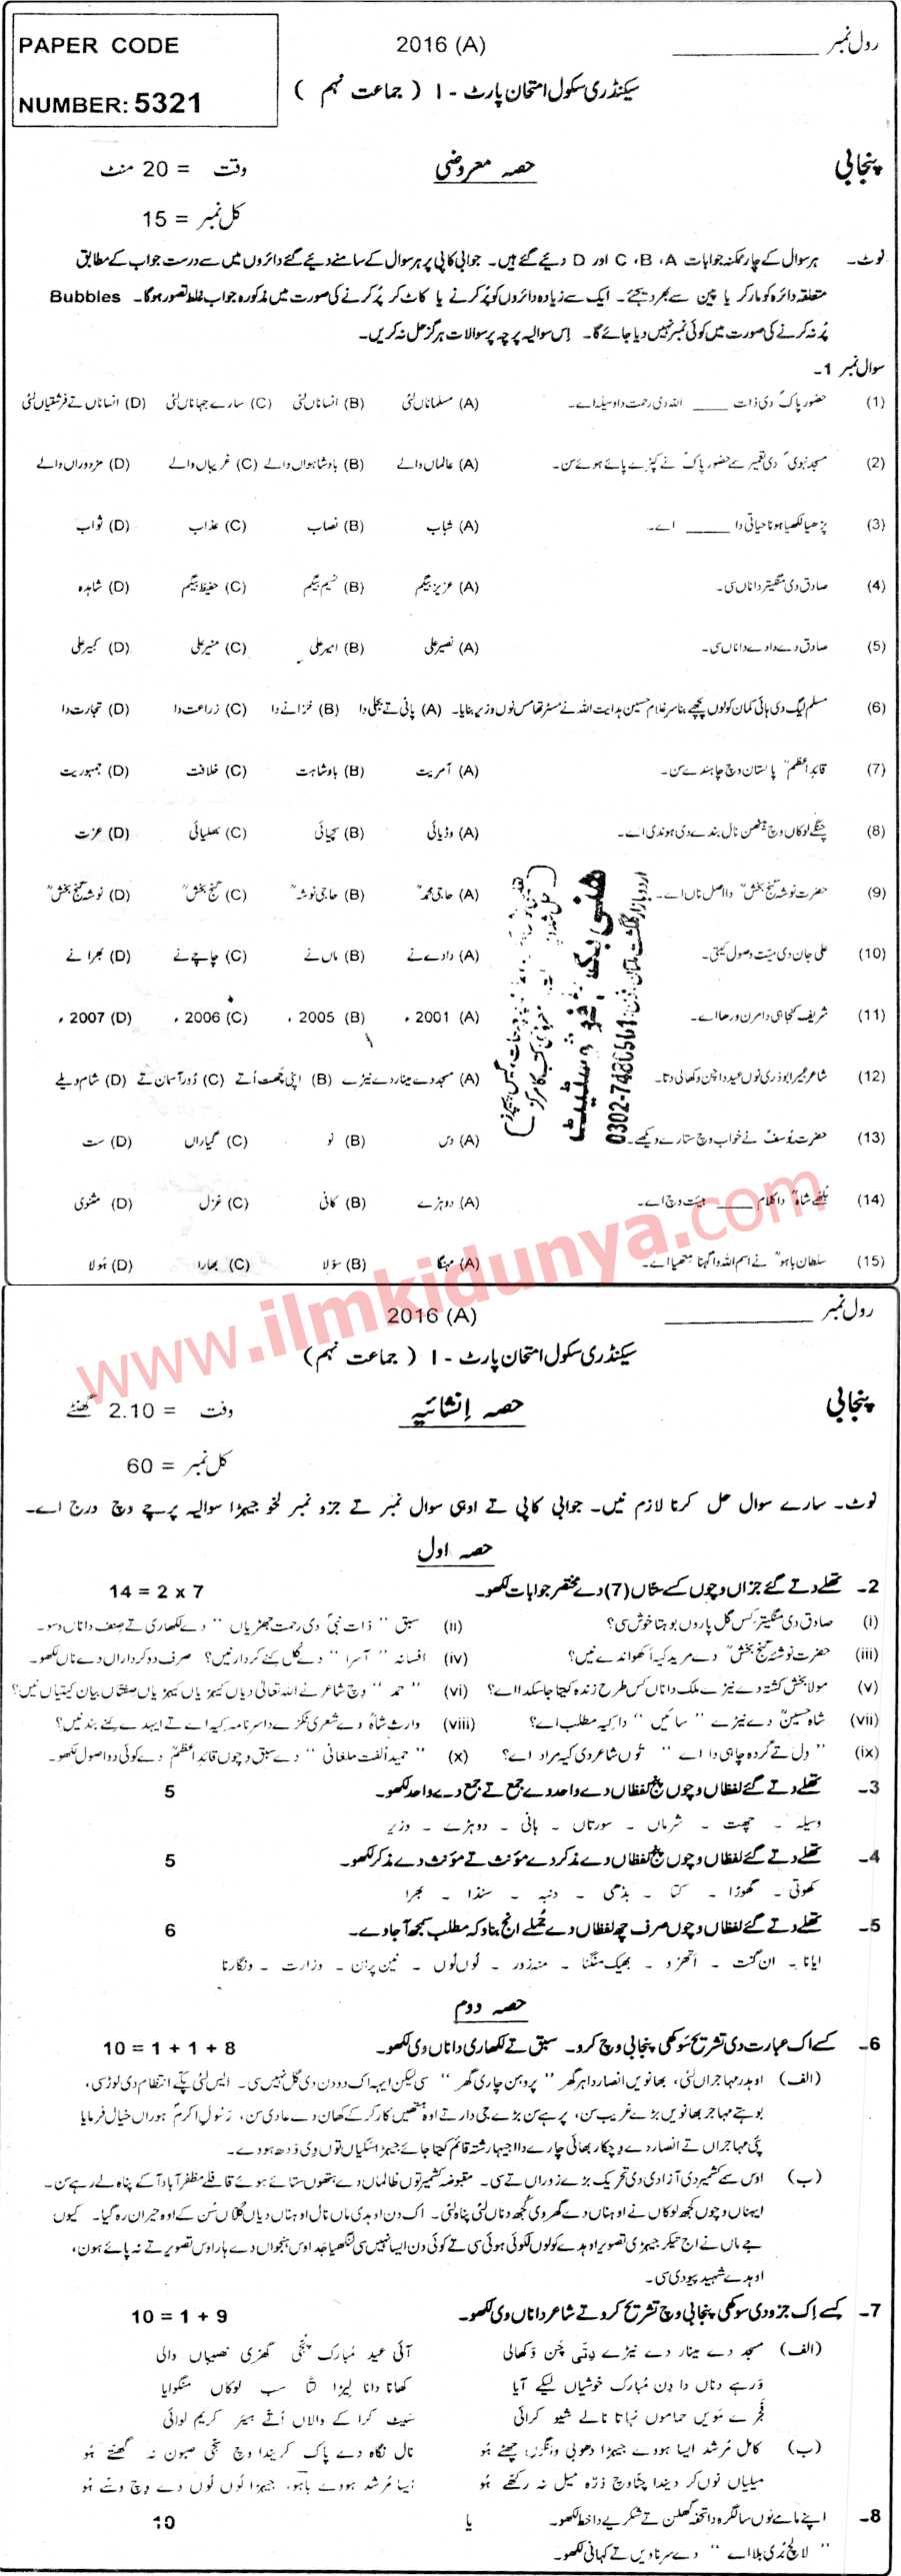 PAPER CODE
NUMBER: 5321
2016 (A)
رول نمبر ____________
سیکنڈری سکول امتحان پارٹ - I ( جماعت نہم )
پنجابی
حصہ معروضی
وقت = 20 منٹ
کل نمبر = 15
نوٹ۔ ہر سوال کے چار ممکنہ جوابات A، B، C اور D دیئے گئے ہیں۔ جوابی کاپی پر ہر سوال کے سامنے دیئے گئے دائروں میں سے درست جواب کے مطابق
متعلقہ دائرہ کو مارکر یا پین سے بھر دیجئے۔ ایک سے زیادہ دائروں کو پُر کرنے یا کاٹ کر پُر کرنے کی صورت میں مذکورہ جواب غلط تصور ہوگا۔ Bubbles
پُر نہ کرنے کی صورت میں کوئی نمبر نہیں دیا جائے گا۔ اِس سوالیہ پرچہ پر سوالات ہرگز حل نہ کریں۔
سوال نمبر 1۔
(1) حضور پاکؐ دی ذات ____ اللہ دی رحمت دا وسیلہ اے۔ (A) مسلماناں لئی (B) انساناں لئی (C) سارے جہاناں لئی (D) انساناں تے فرشتیاں لئی
(2) مسجد نبویؐ دی تعمیر سے حضور پاکؐ نے کپڑے پائے ہوئے سن۔ (A) عالماں والے (B) بادشاہواں والے (C) غریباں والے (D) مزدوراں والے
(3) پڑھیا لکھیا ہونا حیاتی دا ____ اے۔ (A) شباب (B) نصاب (C) عذاب (D) ثواب
(4) صادق دی منگیتر دا ناں سی۔ (A) عزیز بیگم (B) نسیم بیگم (C) حفیظ بیگم (D) شاہدہ
(5) صادق دے دادے دا ناں سی۔ (A) نصیر علی (B) امیر علی (C) منیر علی (D) کبیر علی
(6) مسلم لیگ دی ہائی کمان کولوں پچھے بنا سر غلام حسین ہدایت اللہ نے مسٹر تھامس نوں وزیر بنایا۔ (A) پانی تے بجلی دا (B) خزانے دا (C) زراعت دا (D) تجارت دا
(7) قائداعظمؒ پاکستان وچ چاہندے سن۔ (A) آمریت (B) بادشاہت (C) خلافت (D) جمہوریت
(8) چنگے لوکاں وچ بیٹھن نال بندے دی ہوندی اے۔ (A) وڈیائی (B) سچیائی (C) بھلیائی (D) عزت
(9) حضرت نوشہ گنج بخشؒ دا اصل ناں اے۔ (A) حاجی محمدؒ (B) حاجی نوشہؒ (C) گنج بخشؒ (D) نوشہ گنج بخشؒ
(10) علی جان دی میت وصول کیتی۔ (A) دادے نے (B) ماں نے (C) چاچے نے (D) بھرا نے
(11) شریف کنجاہی دا مرن ورھا اے۔ (A) 2001ء (B) 2005ء (C) 2006ء (D) 2007ء
(12) شاعر نے ابوذری نوں عید دا چن وکھالی دتا۔ (A) مسجد دے مینار دے نیڑے (B) اپنی چھت اُتے (C) دُور آسمان تے (D) شام ویلے
(13) حضرت یُوسفؑ نے خواب وچ ستارے ویکھے۔ (A) دس (B) نو (C) گیاراں (D) ست
(14) بُلھے شاہؒ دا کلام ____ ہیئت وچ اے۔ (A) دوہڑے (B) کافی (C) غزل (D) مثنوی
(15) سلطان باہوؒ نے اسم اللہ دا گہنا متھیا اے۔ (A) مہنگا (B) سَوْلا (C) بھارا (D) ہولا
ھنی بک اینڈ فوٹو سٹیٹ
اردو بازار گلگشت ملتان فون:
0302-7480561
www.ilmkidunya.com
2016 (A)
رول نمبر ____________
سیکنڈری سکول امتحان پارٹ - I ( جماعت نہم )
پنجابی
حصہ اِنشائیہ
وقت = 2.10 گھنٹے
کل نمبر = 60
نوٹ۔ سارے سوال حل کرنا لازم نیں۔ جوابی کاپی تے اوہی سوال نمبر تے جزو نمبر لکھو جیہڑا سوالیہ پرچے وچ درج اے۔
حصہ اول
2۔ تھلے دتے گئے جزاں وچوں کسے ستاں (7) دے مختصر جوابات لکھو۔ 14 = 2 x 7
(i) صادق دی منگیتر کس گل پاروں بوہتا خوش سی؟ (ii) سبق ’’ ذات نبیؐ دی رحمت جھڑیاں ‘‘ دے لکھاری تے صنف دا ناں دسو۔
(iii) حضرت نوشہ گنج بخشؒ دے مرید کیہ اکھواندے نیں؟ (iv) افسانہ ’’ آسرا ‘‘ دے کل کنے کردار نیں؟ صرف دو کرداراں دے ناں لکھو۔
(v) مولا بخش کشتہ دے نیڑے ملک دا ناں کس طرح زندہ کیتا جا سکدا اے؟ (vi) ’’ حمد ‘‘ وچ شاعر نے اللہ تعالیٰ دیاں کیہڑیاں کیہڑیاں صفتاں بیان کیتیاں نیں؟
(vii) شاہ حسینؒ دے نیڑے ’’ سائیں ‘‘ دا کیہ مطلب اے؟ (viii) وارث شاہؒ دے شعری ٹکڑے دا سرنامہ کیہ اے تے ایہدے کنے بند نیں؟
(ix) ’’ دل تے گردہ چاہی دا اے ‘‘ توں شاعر دی کیہ مراد اے؟ (x) ’’ حمید اُلفت ملغانی ‘‘ دے سبق وچوں قائداعظمؒ دے کوئی دو اصول لکھو۔
3۔ تھلے دتے گئے لفظاں وچوں پنج لفظاں دے واحد دے جمع تے جمع دے واحد لکھو۔ 5
وسیلہ - چھت - شرماں - سورتاں - ہانی - دوہڑے - وزیر
4۔ تھلے دتے گئے لفظاں وچوں پنج لفظاں دے مذکر دے مؤنث تے مؤنث دے مذکر لکھو۔ 5
کھوتی - گھوڑا - کتا - بڈھی - دنبہ - سنڈا - بھرا
5۔ تھلے دتے گئے لفظاں وچوں صرف چھ لفظاں دے جُملے انج بناؤ کہ مطلب سمجھ آ جاوے۔ 6
ایانا - ان گنت - اتھرو - بھیک منگنا - منہ زور - لُوں لُوں - نین پران - وزارت - ونگارنا
حصہ دوم
6۔ کسے اک عبارت دی تشریح سوکھی پنجابی وچ کرو۔ سبق تے لکھاری دا ناں وی لکھو۔ 10 = 1 + 1 + 8
(الف) اوہدر مہاجراں لئی، بھانویں انصار دا ہر گھر ’’ پردیسن چاری گھر ‘‘ سی لیکن ایہہ اک دو دن دی گل نہیں سی۔ ایس لئی پکے انتظام دی لوڑ سی،
بوہتے مہاجر بھانویں بڑے غریب سن، پر ہے سن بڑے جی دار تے اوہ ہتھیں کار کرکے کھان دے عادی سن، رَسُولِ اکرمؐ ہوراں خیال فرمایا
پئی مہاجراں تے انصار دے وچکار بھائی چارے دا اجیہا رشتہ قائم کیتا جائے جیہڑا سکیاں توں وی وَدھ ہووے۔
(ب) اوس سمے کشمیر دی آزادی دی تحریک بڑے زوراں تے سی۔ مقبوضہ کشمیر توں ظالماں دے ہتھوں ستائے ہوئے قافلے مظفرآباد آ کے پناہ لے رہے سن۔
ایہناں وچوں کجھ لوکاں نے اوہناں دے گھر وی کُجھ دناں لئی پناہ لئی۔ اک دن اوہدی ماں نال اوہناں دیاں گلاں سن کے اوہ حیران رہ گیا۔ کیوں
جے ماں نے اج تیکر جیہڑی تصویر اوہدے کولوں لکوئی ہوئی سی تے کوئی دن ایسا نہیں سی لنگھیا جد اوس ہنجواں دے ہار اوس تصویر تے نہ پائے ہون،
اوہدے شہید پیو دی سی۔
7۔ کسے اِک جزو دی سوکھی پنجابی وچ تشریح کرو تے شاعر دا ناں وی لکھو۔ 10 = 1 + 9
(الف) مسجد دے مینار دے نیڑے دِتّی چَن وَکھالی آئی عید مُبارک پنجّی گھڑی نصیباں والی
وَرہے دناں دا دِن مُبارک خوشیاں لیکے آیا کھانا دانا لِیڑا لَتّا سب لوکاں منگوایا
فَجرے مَوہیں حماموں نہاتا نالے شیو کرائی سَیٹ کرا کے والاں اُتّے ہیئر کریم لوائی
(ب) کامل مُرشد ایسا ہووے جیہڑا دھوبی وانگوں چھٹے ہُو نال نگاہ دے پاک کریندا وچ سجّی صبون نہ گھتّے ہُو
میلیاں نوں کر دیندا چٹّا وچ ذرّہ میل نہ رکھّے ہُو ایسا مُرشد ہووے باہوؒ، جیہڑا لُوں لُوں دے وچ وسّے ہُو
8۔ اپنے مامے نوں سالگرہ دا تحفہ گھلن تے شکریے دا خط لکھو۔ یا 10
’’ لالچ بُری بلا اے ‘‘ دے سرناویں تے کہانی لکھو۔